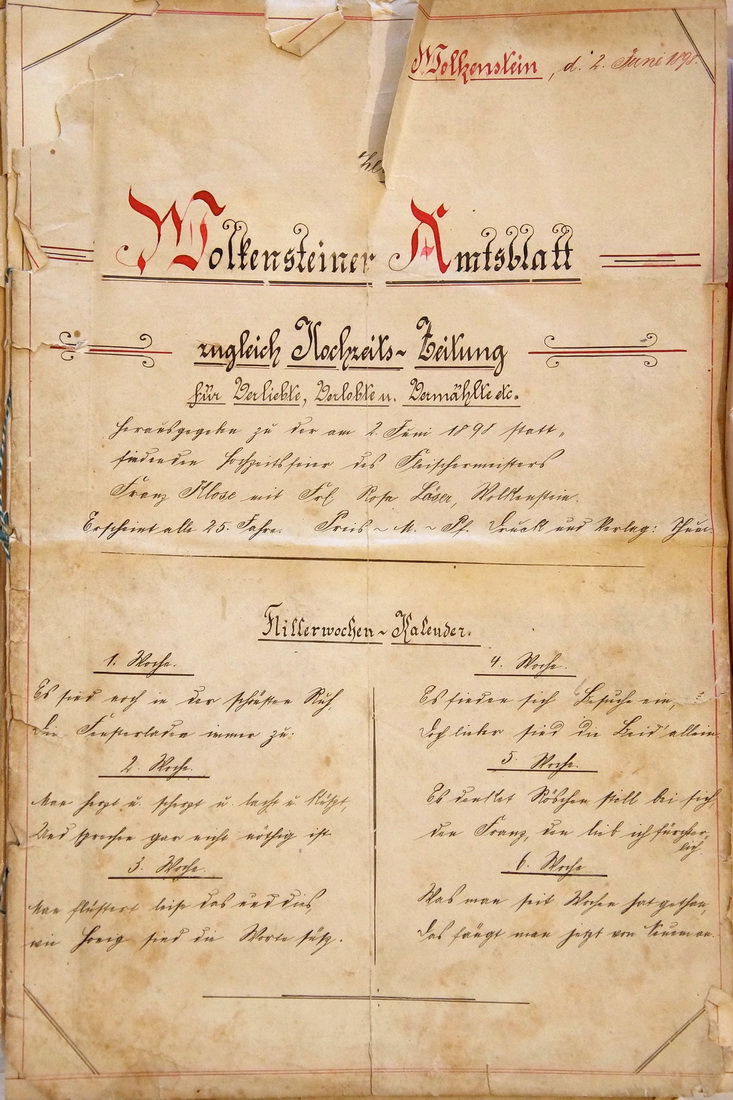 Wolkenstein, d. 2. Juni 1891.
Wolkensteiner Amtsblatt
zugleich Hochzeits-Zeitung
für Verliebte, Verlobte u. Vermählte etc.
Herausgegeben zu der am 2. Juni 1891 statt-
findenden Hochzeitsfeier des Fleischermeisters
Franz Klose mit Frl. Rosa Löser, Wolkenstein.
Erscheint alle 25 Jahre. Preis ~ M. ~ Pf. Druck und Verlag:
Flitterwochen-Kalender.
1. Woche.
Es sind noch in der schönsten Ruh,
Die Fensterladen immer zu.
2. Woche.
Man herzt u. scherzt u. lacht u. küsst,
Und sprechen gar nicht nöthig ist
3. Woche.
Man flüstert leise das und dies
wie Honig sind die Worte süß.
4. Woche.
Es finden sich Besuche ein,
Doch lieber sind die Beid' allein
5. Woche.
Es denket Röschen still bei sich,
den Franz, den lieb ich fürchter-
lich.
6. Woche
Was man seit Wochen hat gethan,
Das fängt man jetzt von Neuem an.